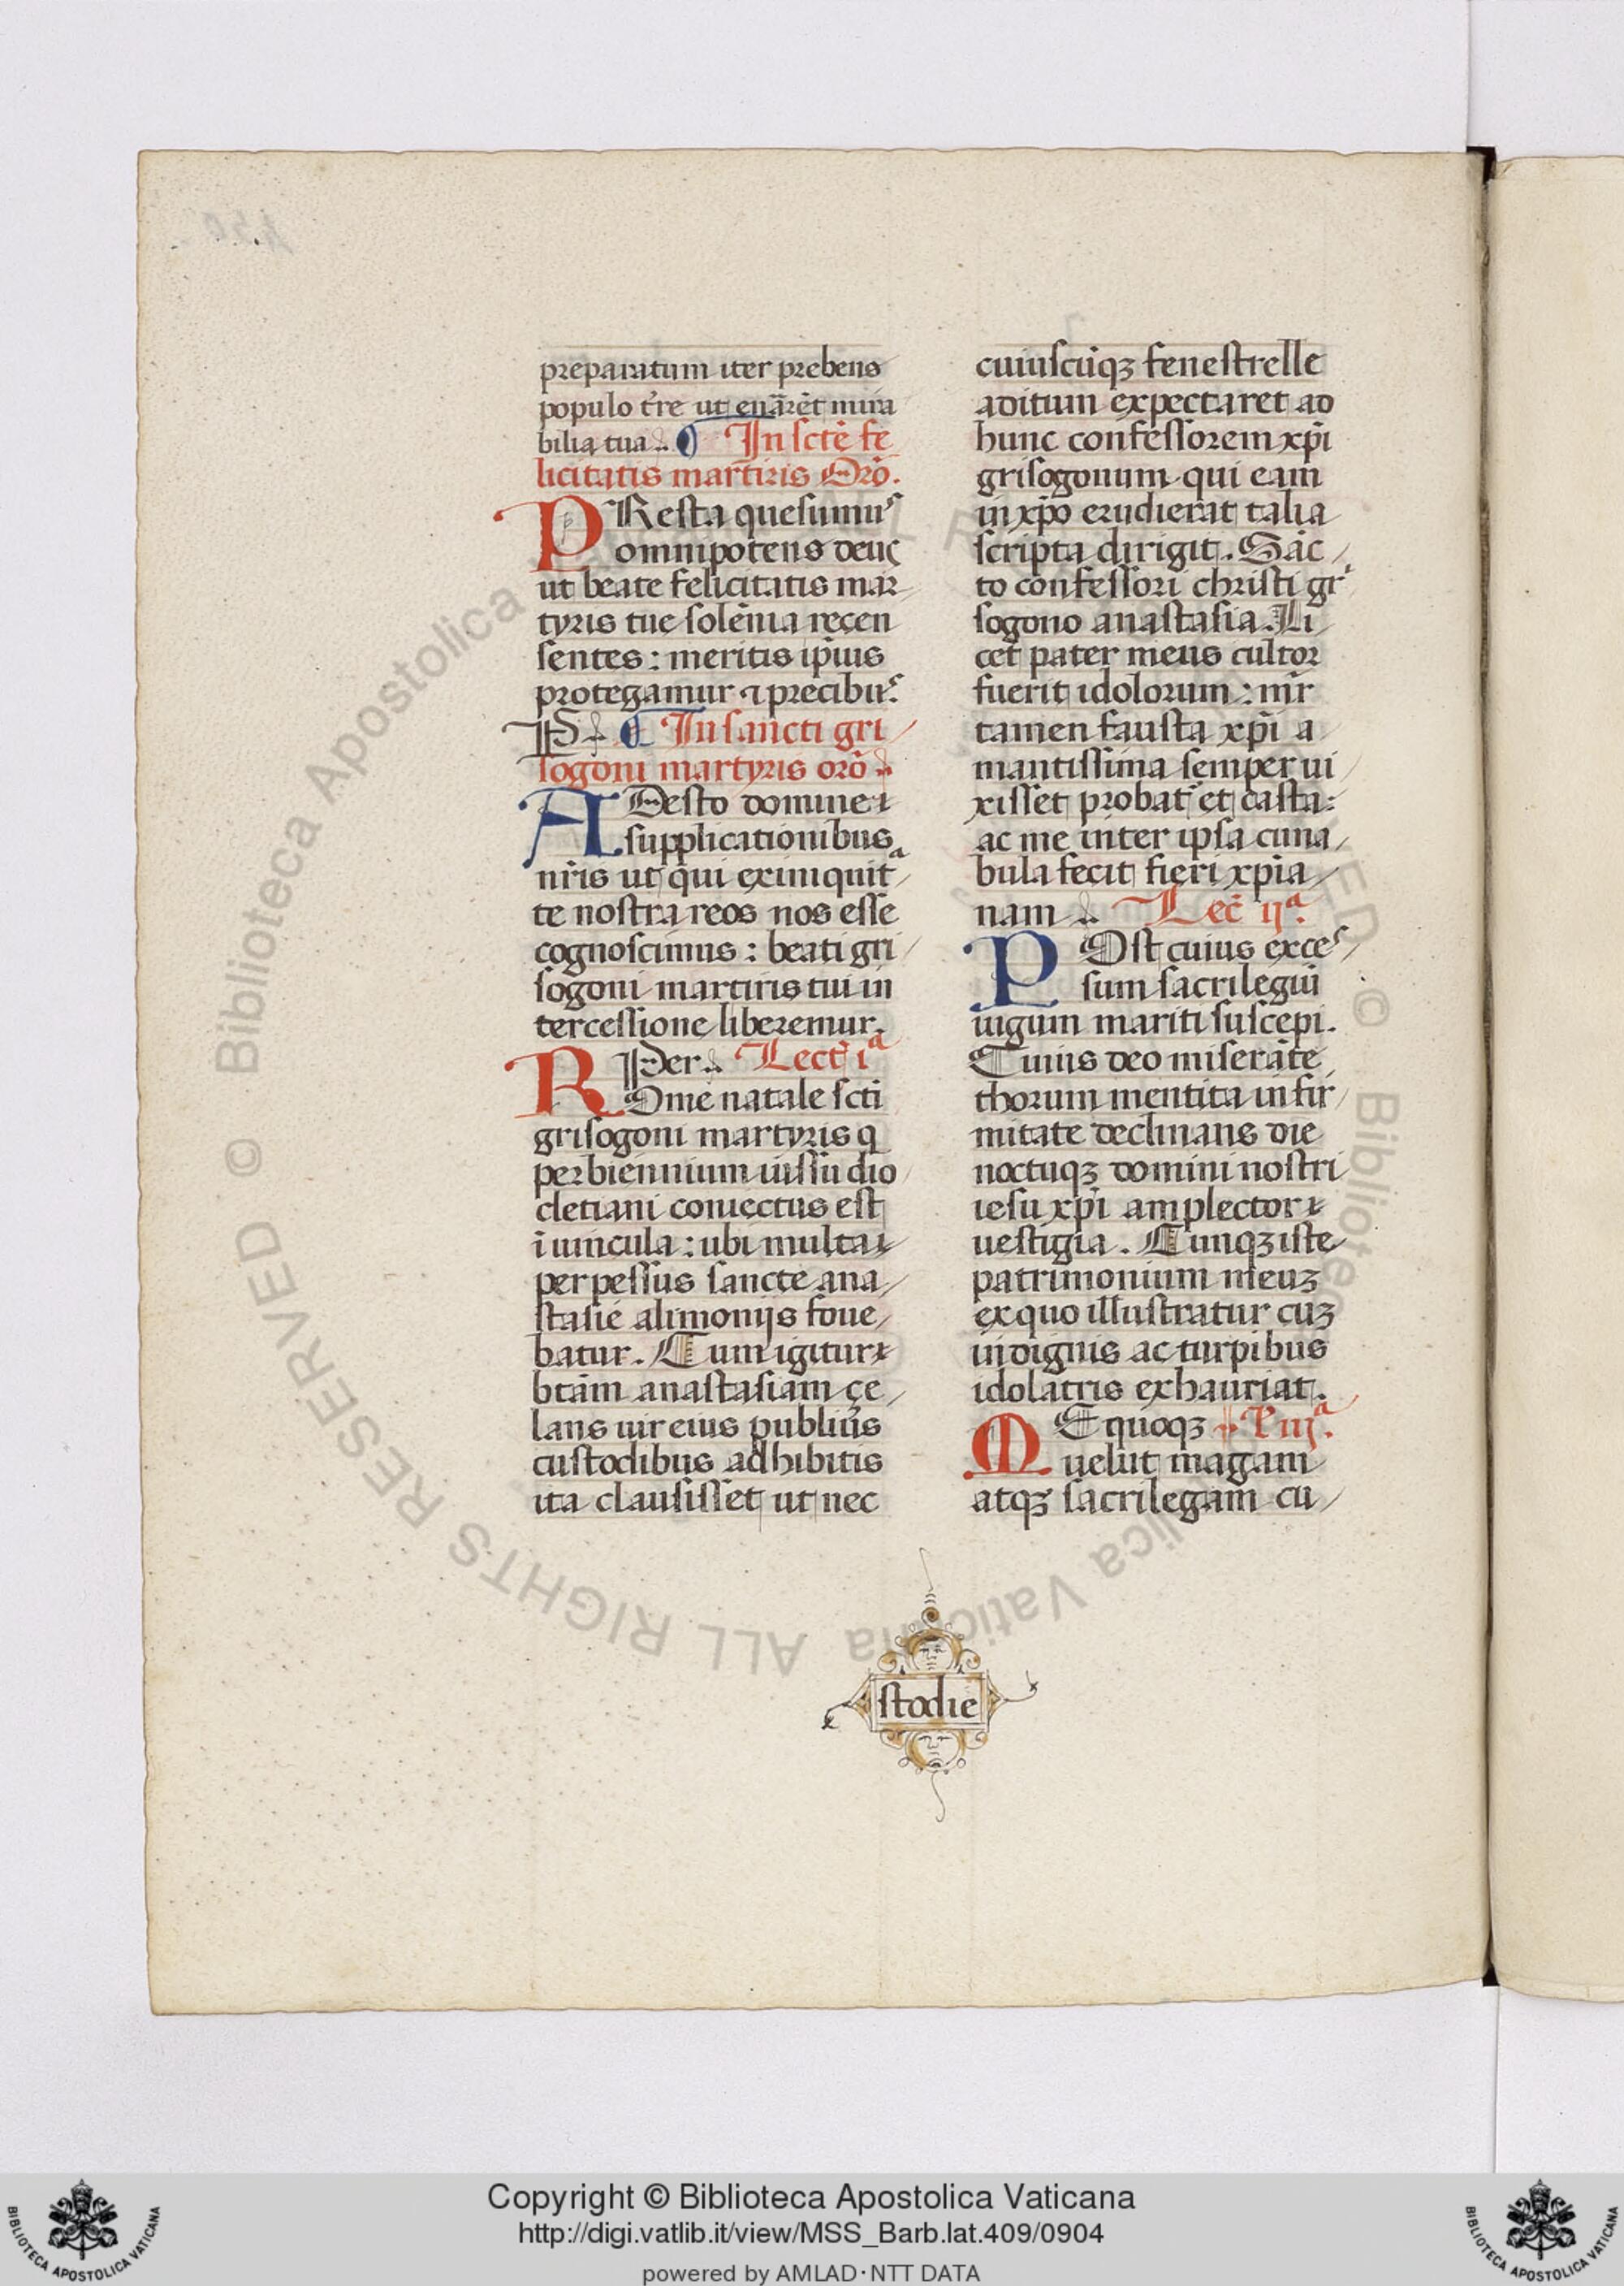 preparatum iter prebens
populo t̄re ut enārēt mira
bilia tua. In sctē fe
licitatis martiris Orō.
PResta quesumus
omnipotens deus
ut beate felicitatis mar
tyris tue solēnia recen
sentes: meritis ip̄ius
protegamur ⁊ precibus.
P In sancti gri
sogoni martyris orō
ADesto domine
supplicationibus
nr̄is ut qui ex iniquita
te nostra reos nos esse
cognoscimus: beati gri
sogoni martiris tui in
tercessione liberemur.
Per. Lect̄ iª
ROme natale scti
grisogoni martyris q
per biennium iussu dio
cletiani coniectus est
ī uincula: ubi multa
perpessus sancte ana
stasie alimonijs foue
batur. Cum igitur
btām anastasiam ce
lans uir eius publius
custodibus adhibitis
ita clausisset ut nec
cuiuscūqꝫ fenestrelle
aditum expectaret ad
hunc confessorem xp̄i
grisogonum qui eam
in xp̄o erudierat talia
scripta dirigit. Sāc
to confessori christi gri
sogono anastasia. Li
cet pater meus cultor
fuerit idolorum: mr̄
tamen fausta xp̄i a
mantissima semper ui
xisset probat' et casta:
ac me inter ipsa cuna
bula fecit fieri xp̄ia
nam. Lec̄ ijª.
POst cuius exces
sum sacrilegiū
iugum mariti suscepi.
Cuius deo miserāte
thorum mentita infir
mitate declinans die
noctuqꝫ domini nostri
iesu xp̄i amplector
uestigia. Cunqꝫ iste
patrimonium meuꝫ
ex quo illustratur cuꝫ
indignis ac turpibus
idolatris exhauriat.
ME quoqꝫ iijª.
uelut magam
atqꝫ sacrilegam cu
stodie
Copyright © Biblioteca Apostolica Vaticana
http://digi.vatlib.it/view/MSS_Barb.lat.409/0904
powered by AMLAD·NTT DATA
BIBLIOTECA APOSTOLICA VATICANA
BIBLIOTECA APOSTOLICA VATICANA
© Biblioteca Apostolica Vaticana ALL RIGHTS RESERVED